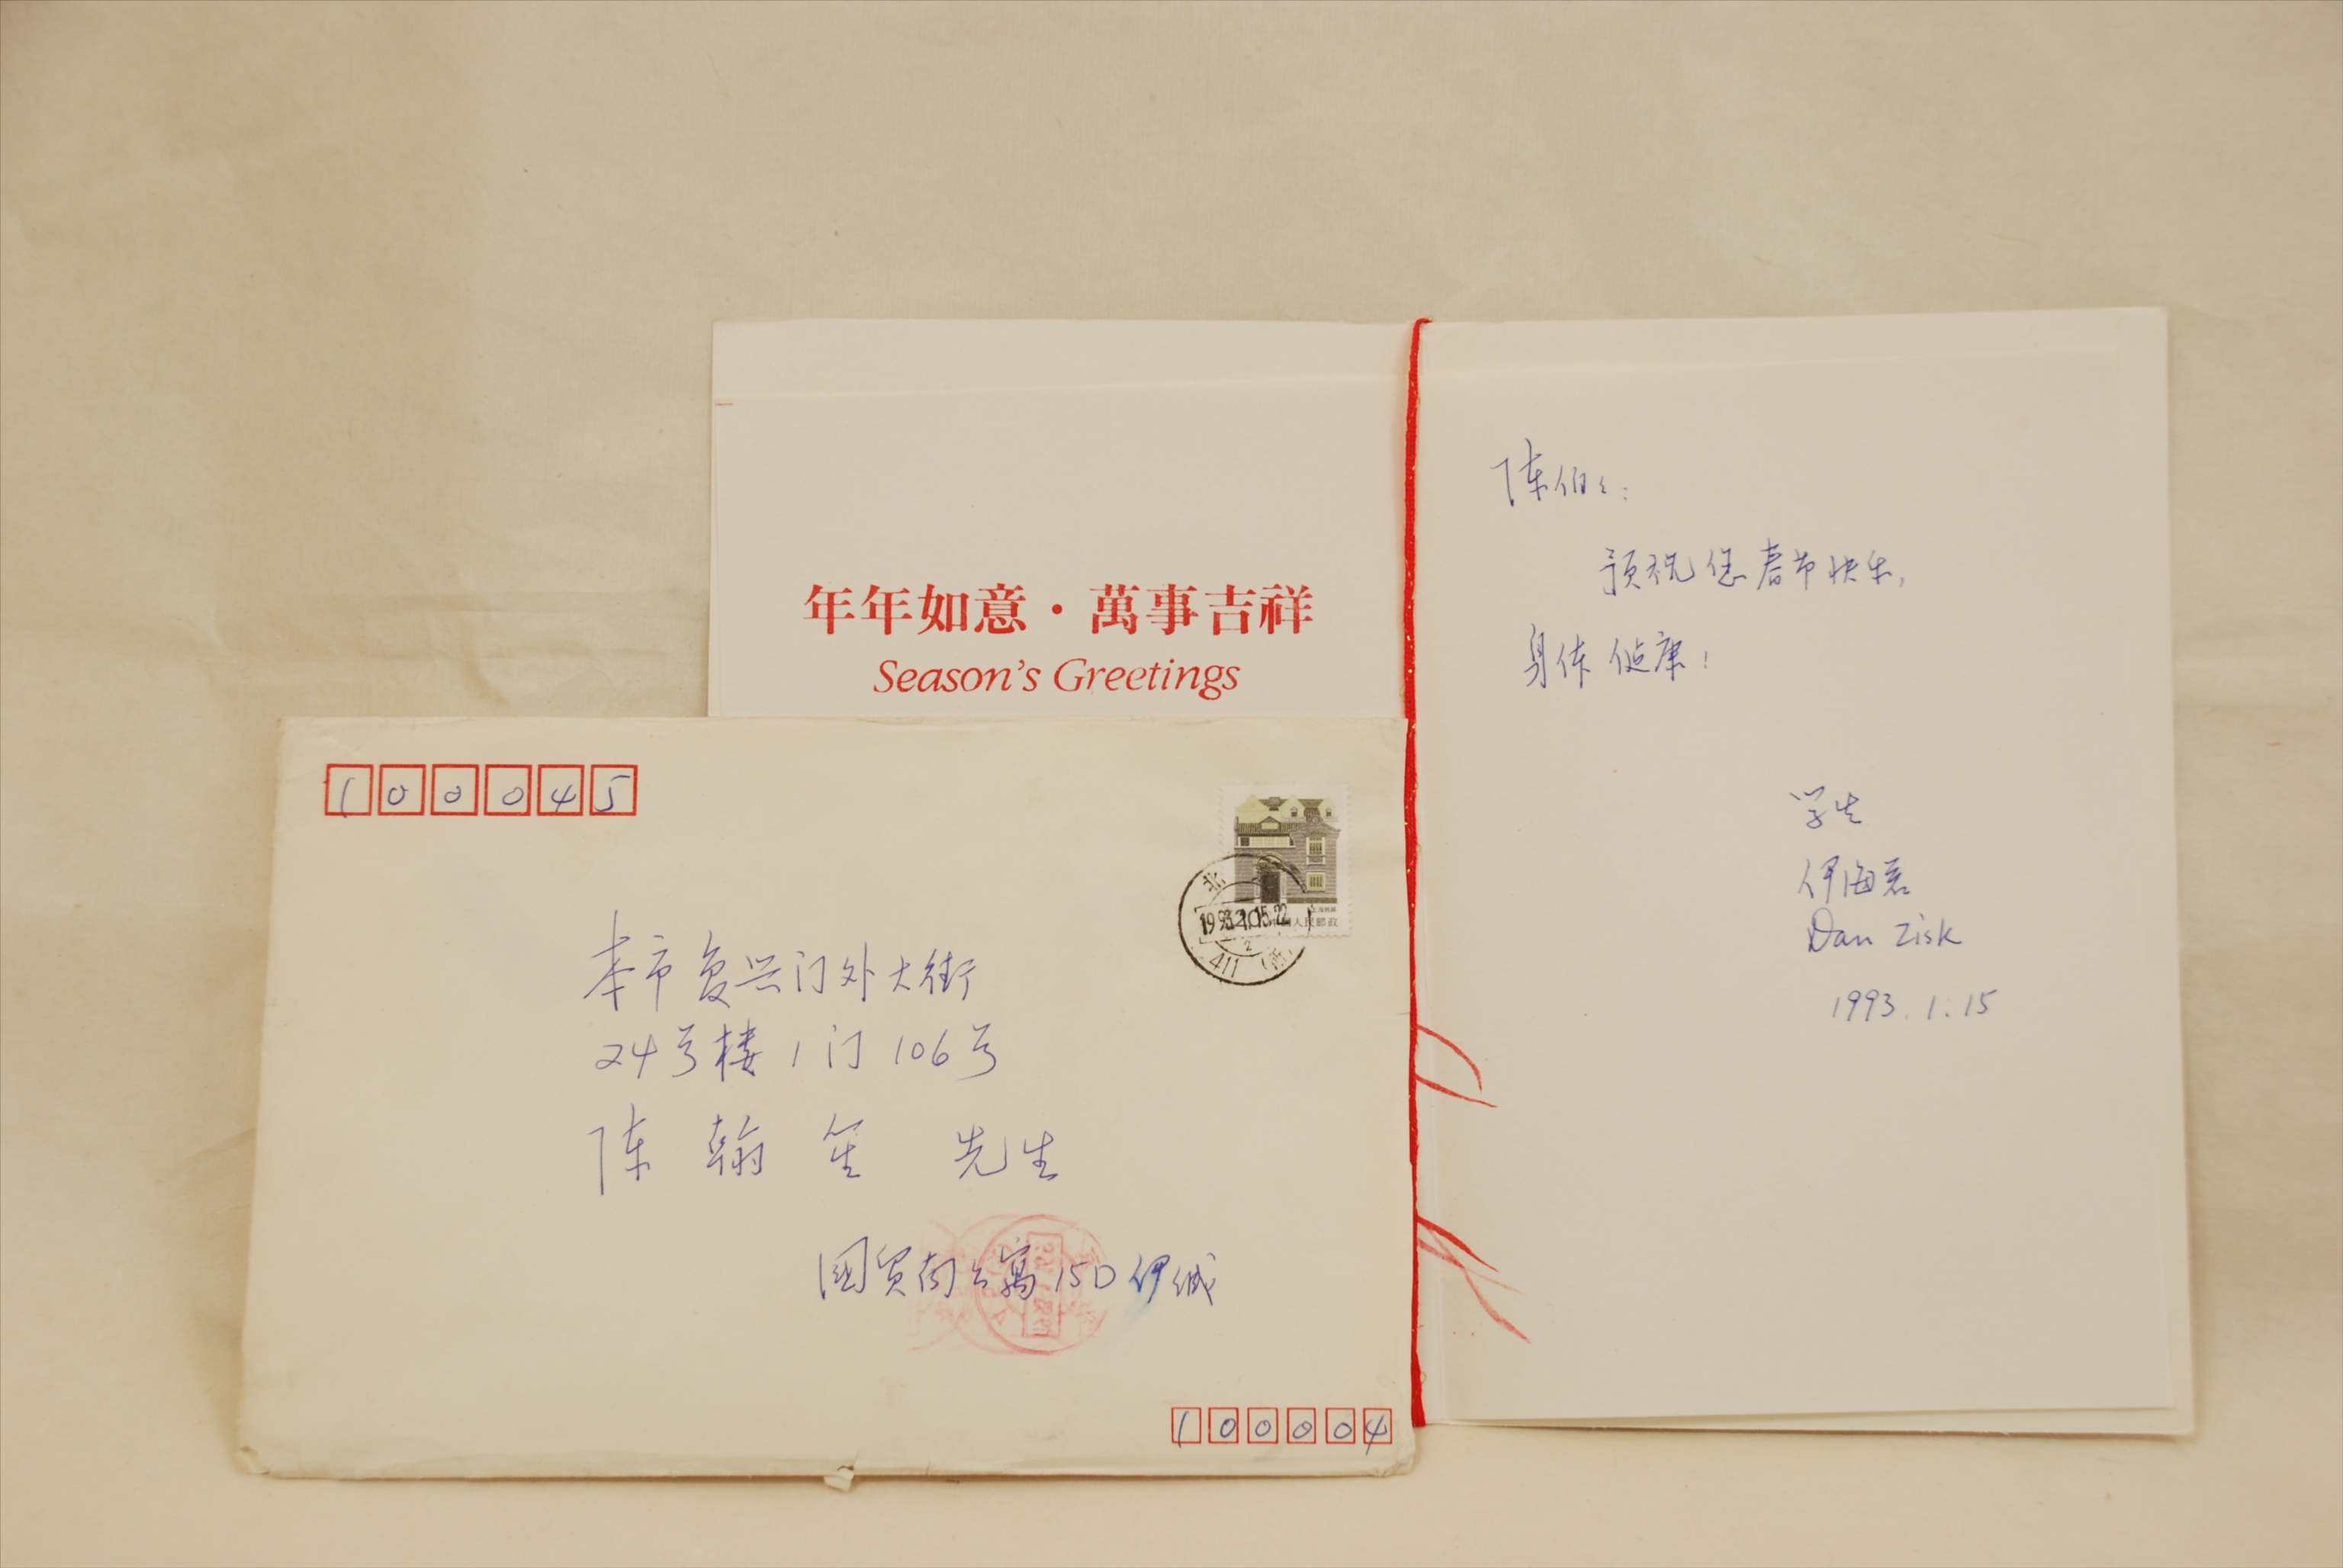 年年如意·萬事吉祥
Season's Greetings
陈伯々:
预祝您春节快乐,
身体健康!
学生
伊海君
Dan Zisk
1993.1.15
100045
本市复兴门外大街
24号楼1门106号
陈翰笙 先生
国贸南公寓15D 伊缄
100004
人民邮政
北
411